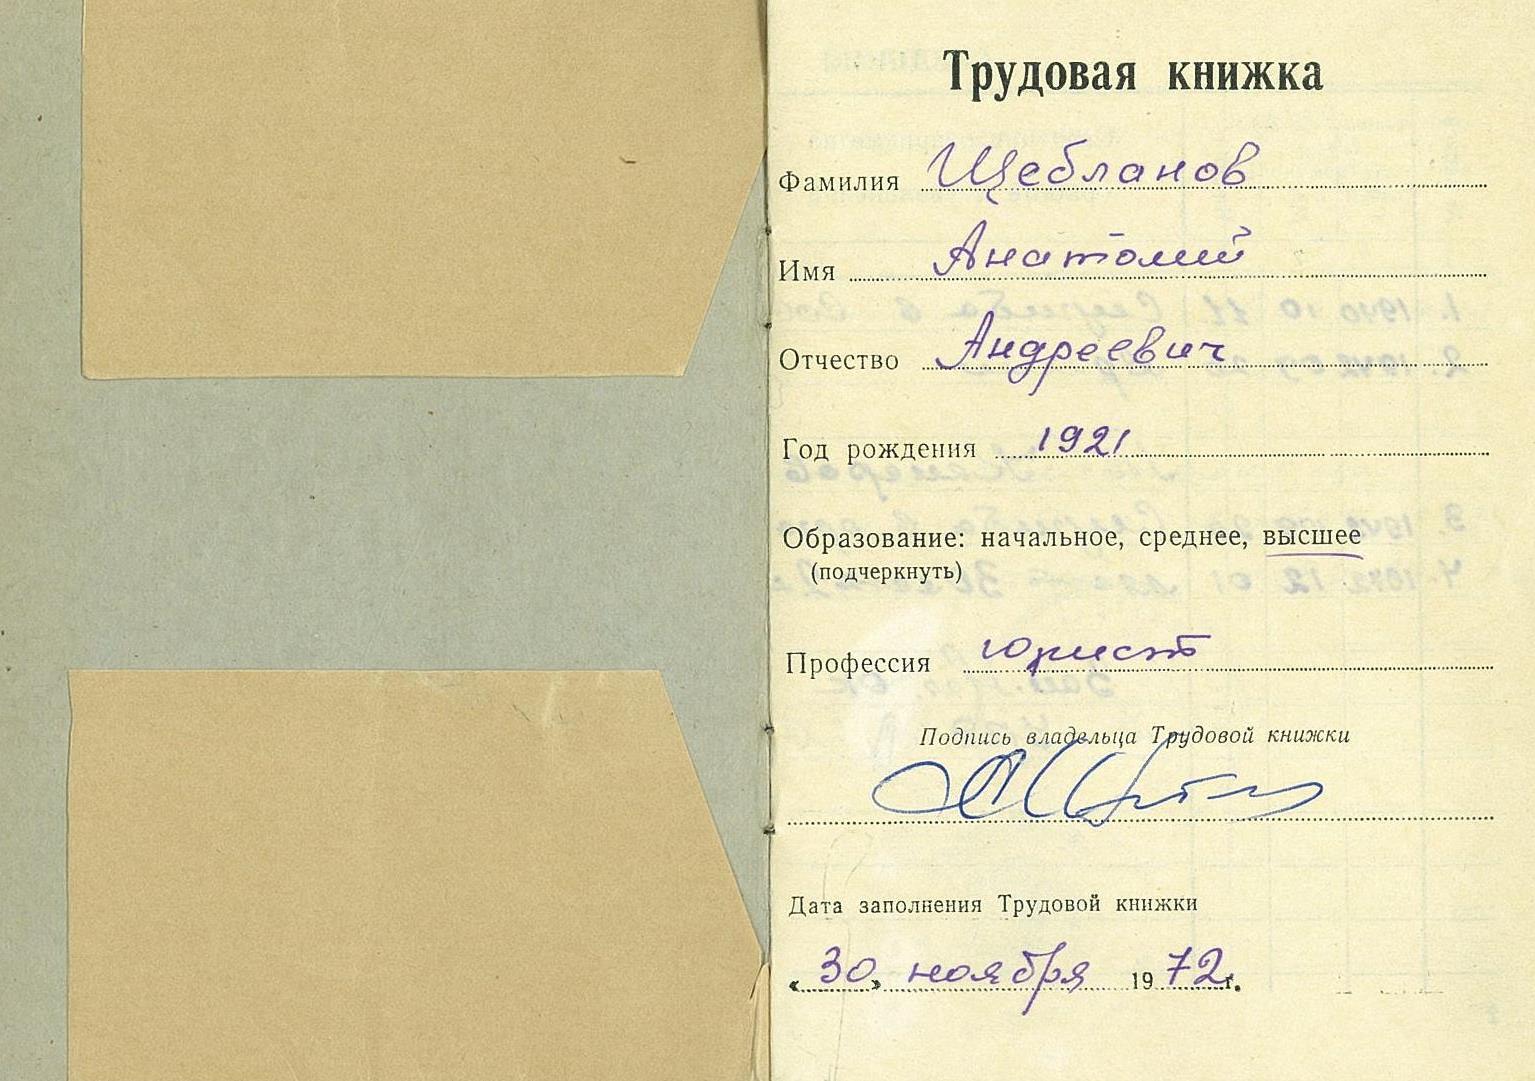 Трудовая книжка
Фамилия Щебланов
Имя Анатолий
Отчество Андреевич
Год рождения 1921
Образование: начальное, среднее, высшее
(подчеркнуть)
Профессия юрист
Подпись владельца Трудовой книжки
Дата заполнения Трудовой книжки
«30» ноября 1972г.